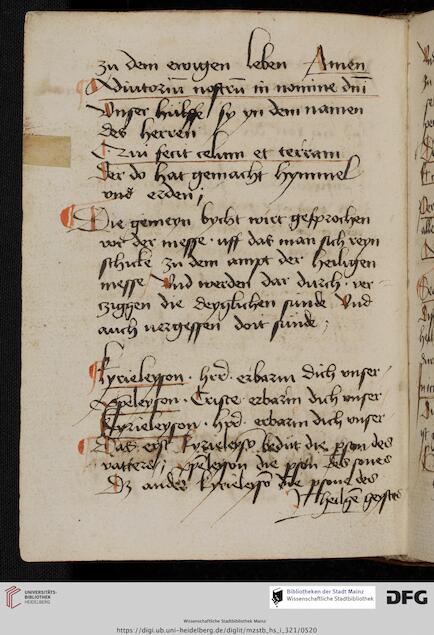 zu dem ewigen leben Amen
Adiutoriū nostrū in nomine dni
Unser hulffe sy yn dem namen
des herren
Qui fecit celum et terram
Der do hat gemacht hymmel
und erden;
Die gemeyn bycht wirt gesprochen
vor der messe · uff das man sich reyn
schicke zu dem ampt der heiligen
messe Und werden dar durch · ver-
ziggen die deglichen sunde Und
auch vergessen doit sunde;
Kyrieleyson · hrd · erbarm dich unser
Xpeleyson · Criste erbarm dich unser
Kyrieleyson · hrd · erbarm dich unser
Das erst kyrieleyso bedut die pson des
vatters; xpeleyson die pson des sones
Dz ander kyrieleyso die psone des
heilgē geystes
UNIVERSITÄTS-
BIBLIOTHEK
HEIDELBERG
Bibliotheken der Stadt Mainz
Wissenschaftliche Stadtbibliothek
DFG
Wissenschaftliche Stadtbibliothek Mainz
https://digi.ub.uni-heidelberg.de/diglit/mzstb_hs_i_321/0520